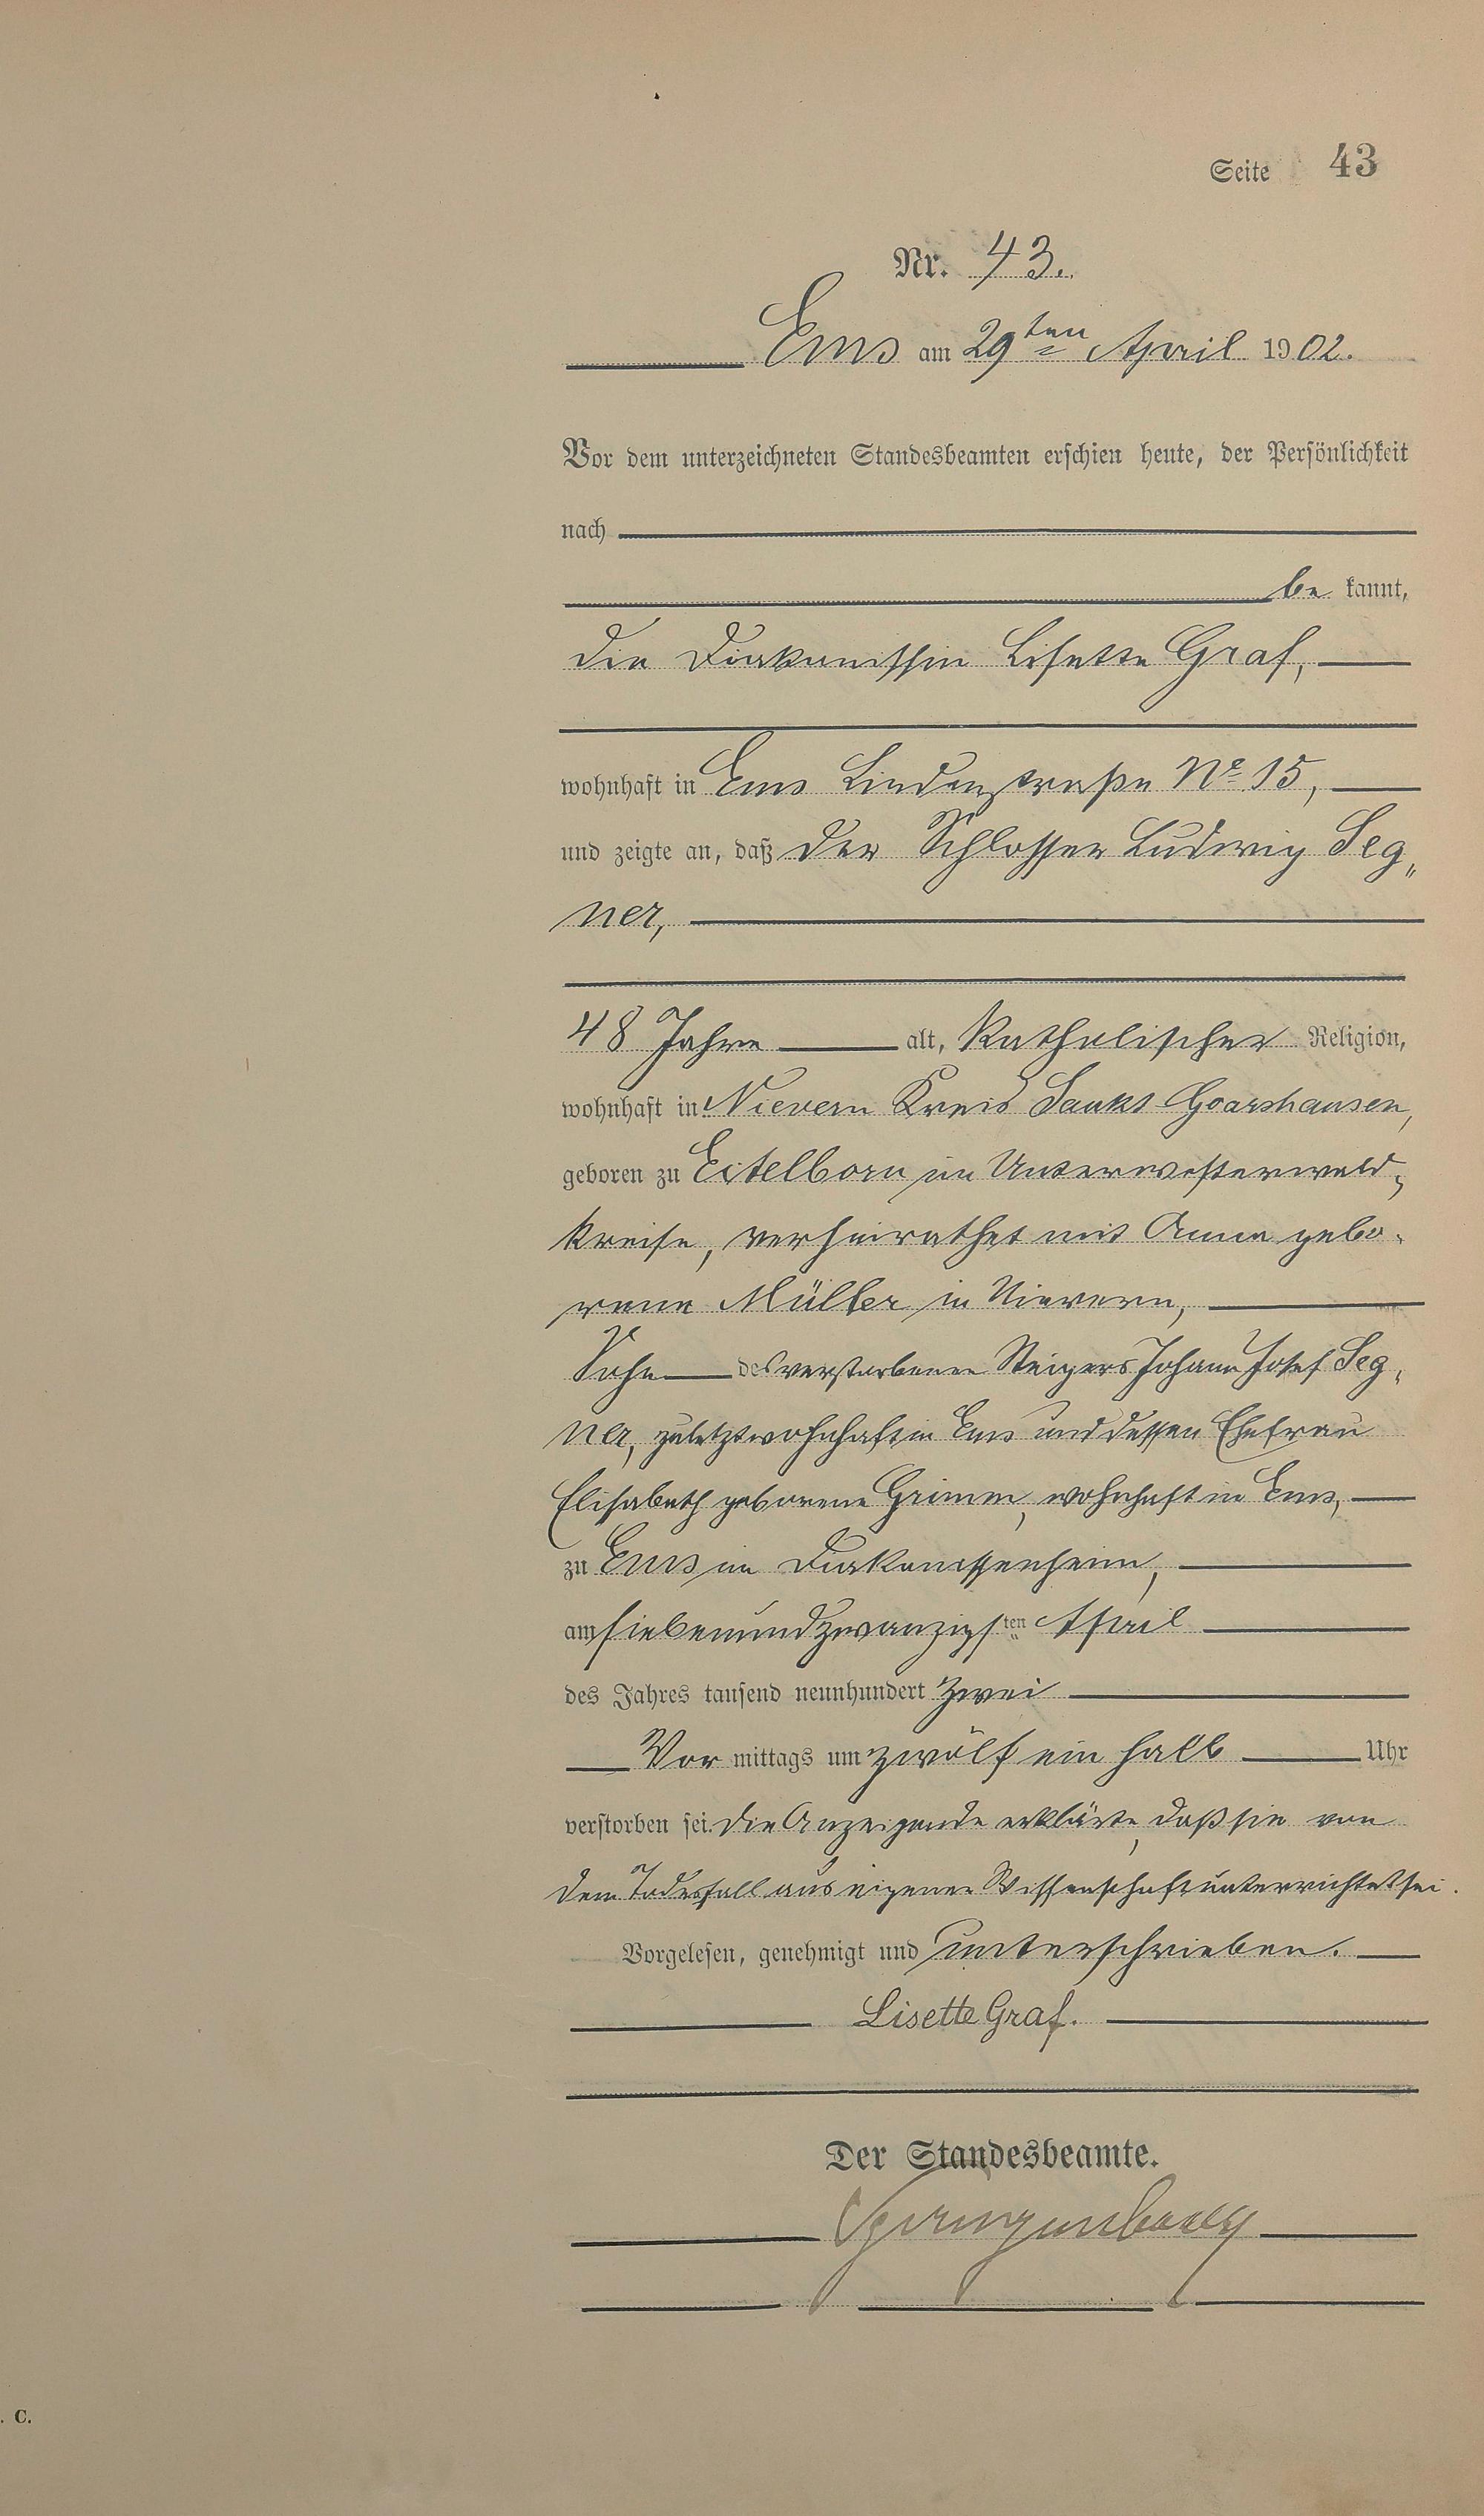 Seite 43
Nr. 43.
Ems am 29ten April 1902.
Vor dem unterzeichneten Standesbeamten erschien heute, der Persönlichkeit
nach
be kannt,
die Diakonissin Lisette Graf,
wohnhaft in Ems Lindenstraße No 15,
und zeigte an, daß der Schlosser Ludwig Seg„
ner,
48 Jahre alt, katholischer Religion,
wohnhaft in Nievern Kreis Sankt Goarshausen,
geboren zu Eitelborn im Unterwesterwald„
kreise, verheirathet mit Anna gebo„
rene Müller in Nievern,
Sohn des verstorbenen Steigers Johann Josef Seg„
ner, zuletzt wohnhaft in Ems und dessen Ehefrau
Elisabeth geborene Grimm, wohnhaft in Ems,
zu Ems im Diakonissenheim,
am siebenundzwanzigsten April
des Jahres tausend neunhundert zwei
Vor mittags um zwölf ein halb Uhr
verstorben sei. Die Anzeigende erklärte, daß sie von
dem Todesfall aus eigener Wissenschaft unterrichtet sei.
Vorgelesen, genehmigt und unterschrieben.
Lisette Graf.
Der Standesbeamte.
. C.